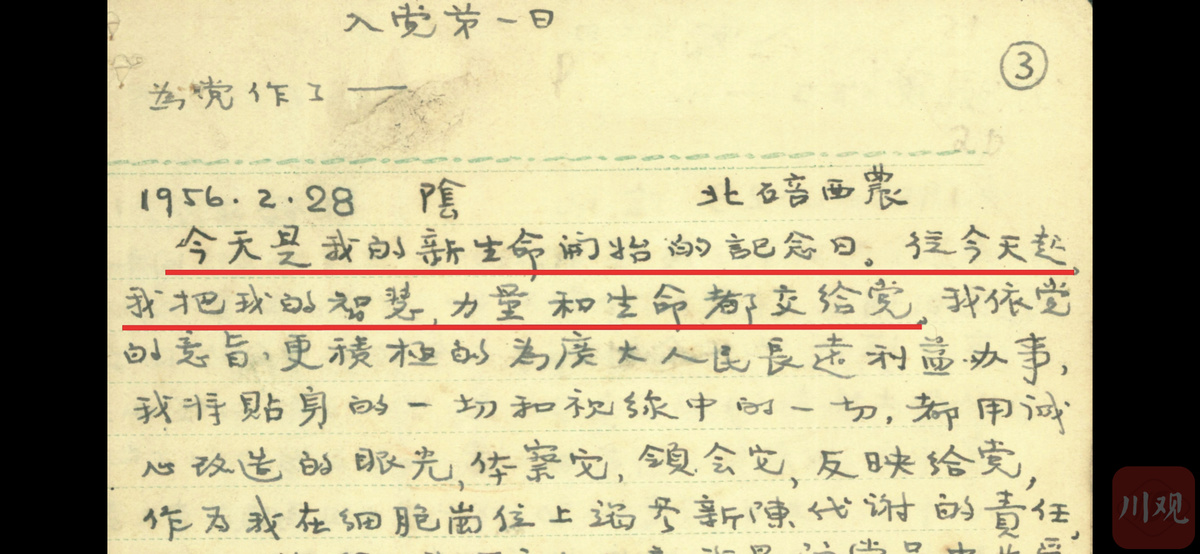 入党第一日
③
為党作了——
1956.2.28 陰 北碚西農
今天是我的新生命開始的記念日。従今天起,
我把我的智慧,力量和生命都交給党,我依党
的意旨,更積極的為廣大人民長遠利益办事,
我将貼身的一切和視線中的一切,都用誠
心改造的眼光,体察它,領会它,反映給党,
作为我在細胞崗位上竭尽新陳代谢的責任,
川观